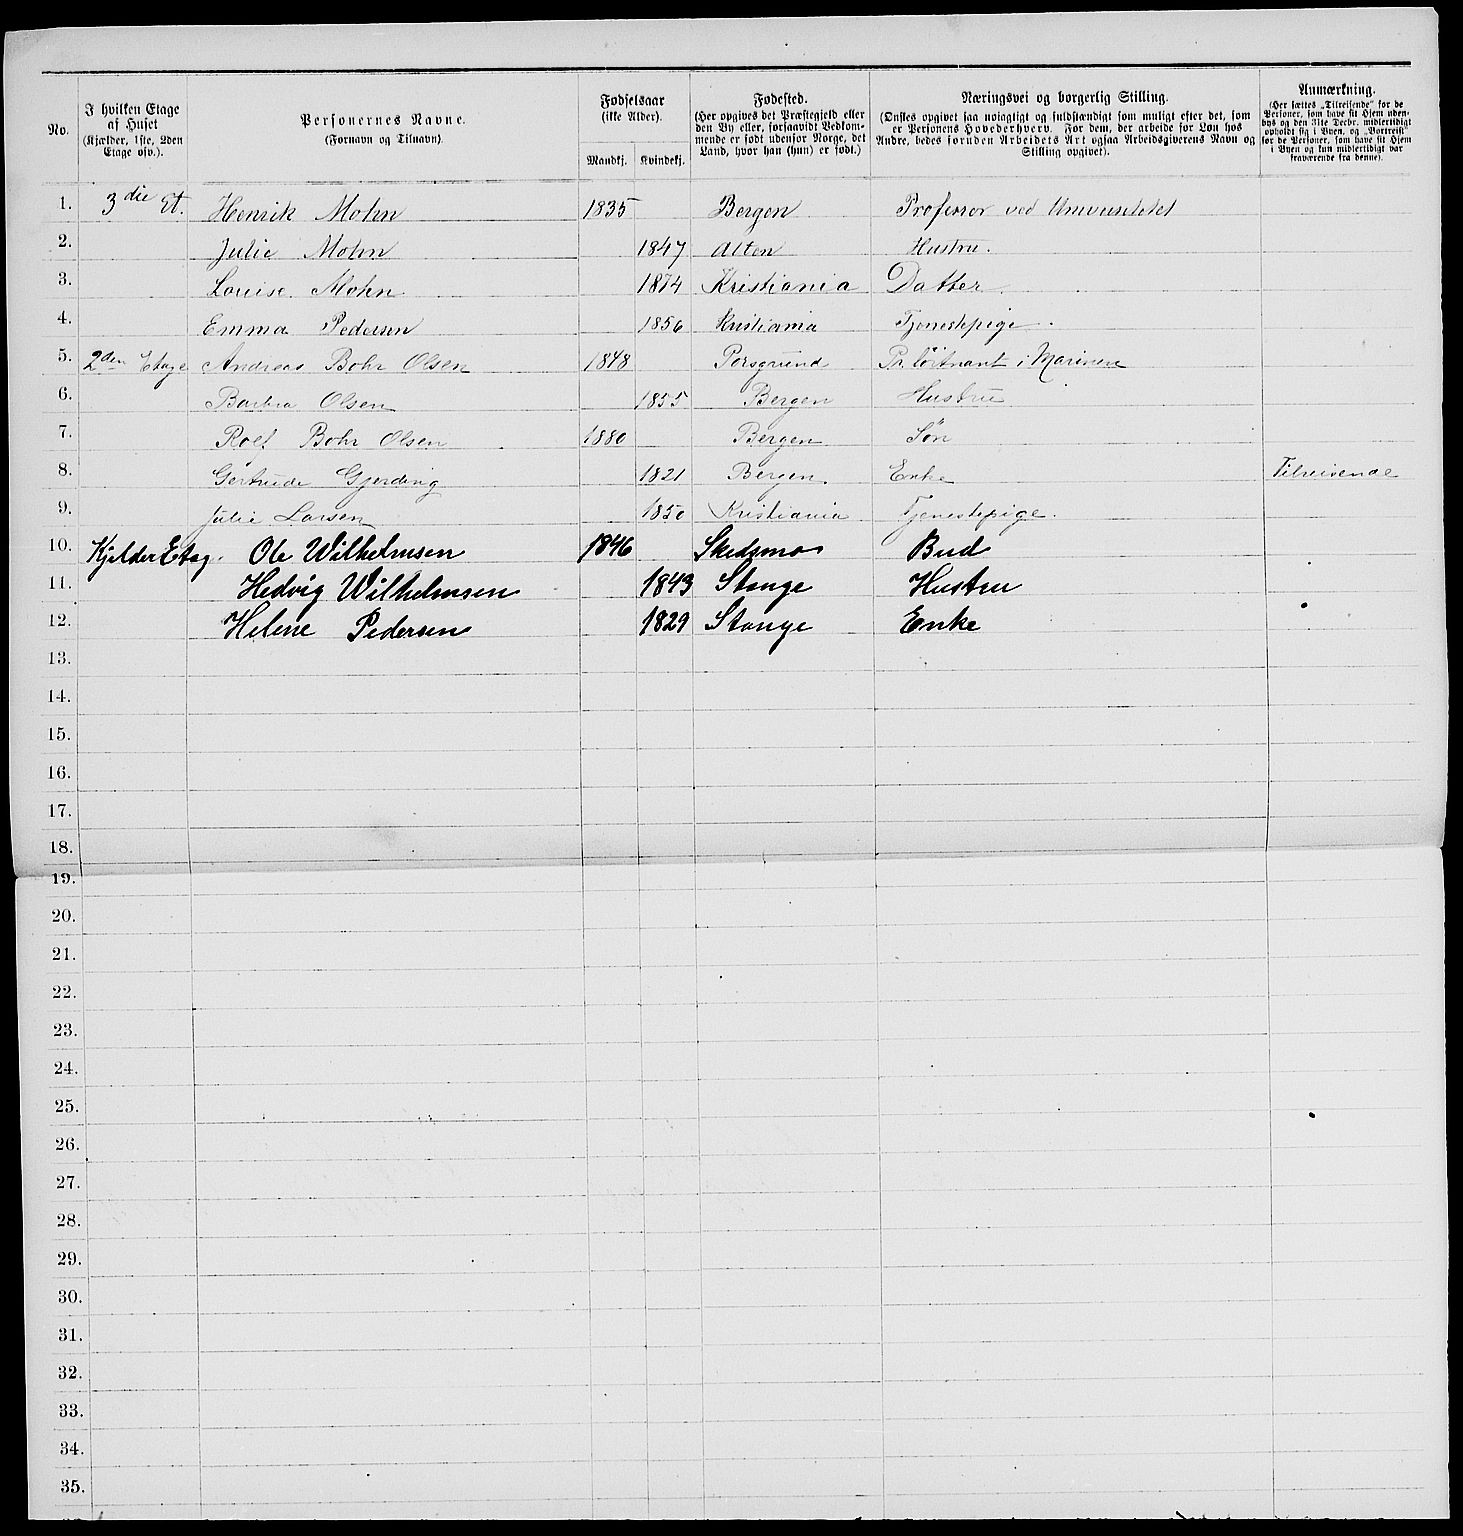 No.
I hvilken Etage
af Huset
(Kjælder, 1ste, 2den
Etage osv.).
Personernes Navne.
(Fornavn og Tilnavn).
Fødselsaar
(ikke Alder).
Mandkj. Kvindekj.
Fødested.
(Her opgives det Præstegjeld eller
den By eller, forsaavidt Vedkom-
mende er født udenfor Norge, det
Land, hvor han (hun) er født.)
Næringsvei og borgerlig Stilling.
(Ønskes opgivet saa nøiagtigt og fuldstændigt som muligt efter det, som
er Personens Hovederhverv. For dem, der arbeide for Løn hos
Andre, bedes foruden Arbeidets Art ogsaa Arbeidsgiverens Navn og
Stilling opgivet).
Anmærkning.
(Her sættes „Tilreisende“ for de
Personer, som have sit Hjem uden-
bys og den 31te Decbr. midlertidigt
opholdt sig i Byen, og „Bortreist“
for de Personer, som have sit Hjem
i Byen og kun midlertidigt var
fraværende fra denne).
1. 3die Et. Henrik Mohn 1835 Bergen Professor ved Universitetet
2. Julie Mohn 1847 Alten Hustru.
3. Louise Mohn 1874 Kristiania Datter
4. Emma Pedersen 1856 Kristiania Tjenestepige.
5. 2den Etage Andreas Bohr Olsen 1848 Porsgrund Pr. löitnant i Marinen
6. Olsen 1855 Bergen Hustru
7. Rolf Bohr Olsen 1880 Bergen Sön
8. Gertrude Gjerding 1821 Bergen. Enke Tilreisende
9. Julie Larsen 1850 Kristiania Tjenestepige.
10. Kjelder Etag. Ole Wilhelmsen 1846 Skedsmo Bud
11. Hedvig Wilhelmsen 1843 Stange Hustru
12. Helene Pedersen 1829 Stange Enke
13.
14.
15.
16.
17.
18.
19.
20.
21.
22.
23.
24.
25.
26.
27.
28.
29.
30.
31.
32.
33.
34.
35.